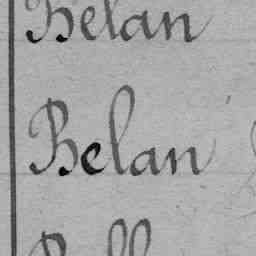 Belan
Belan